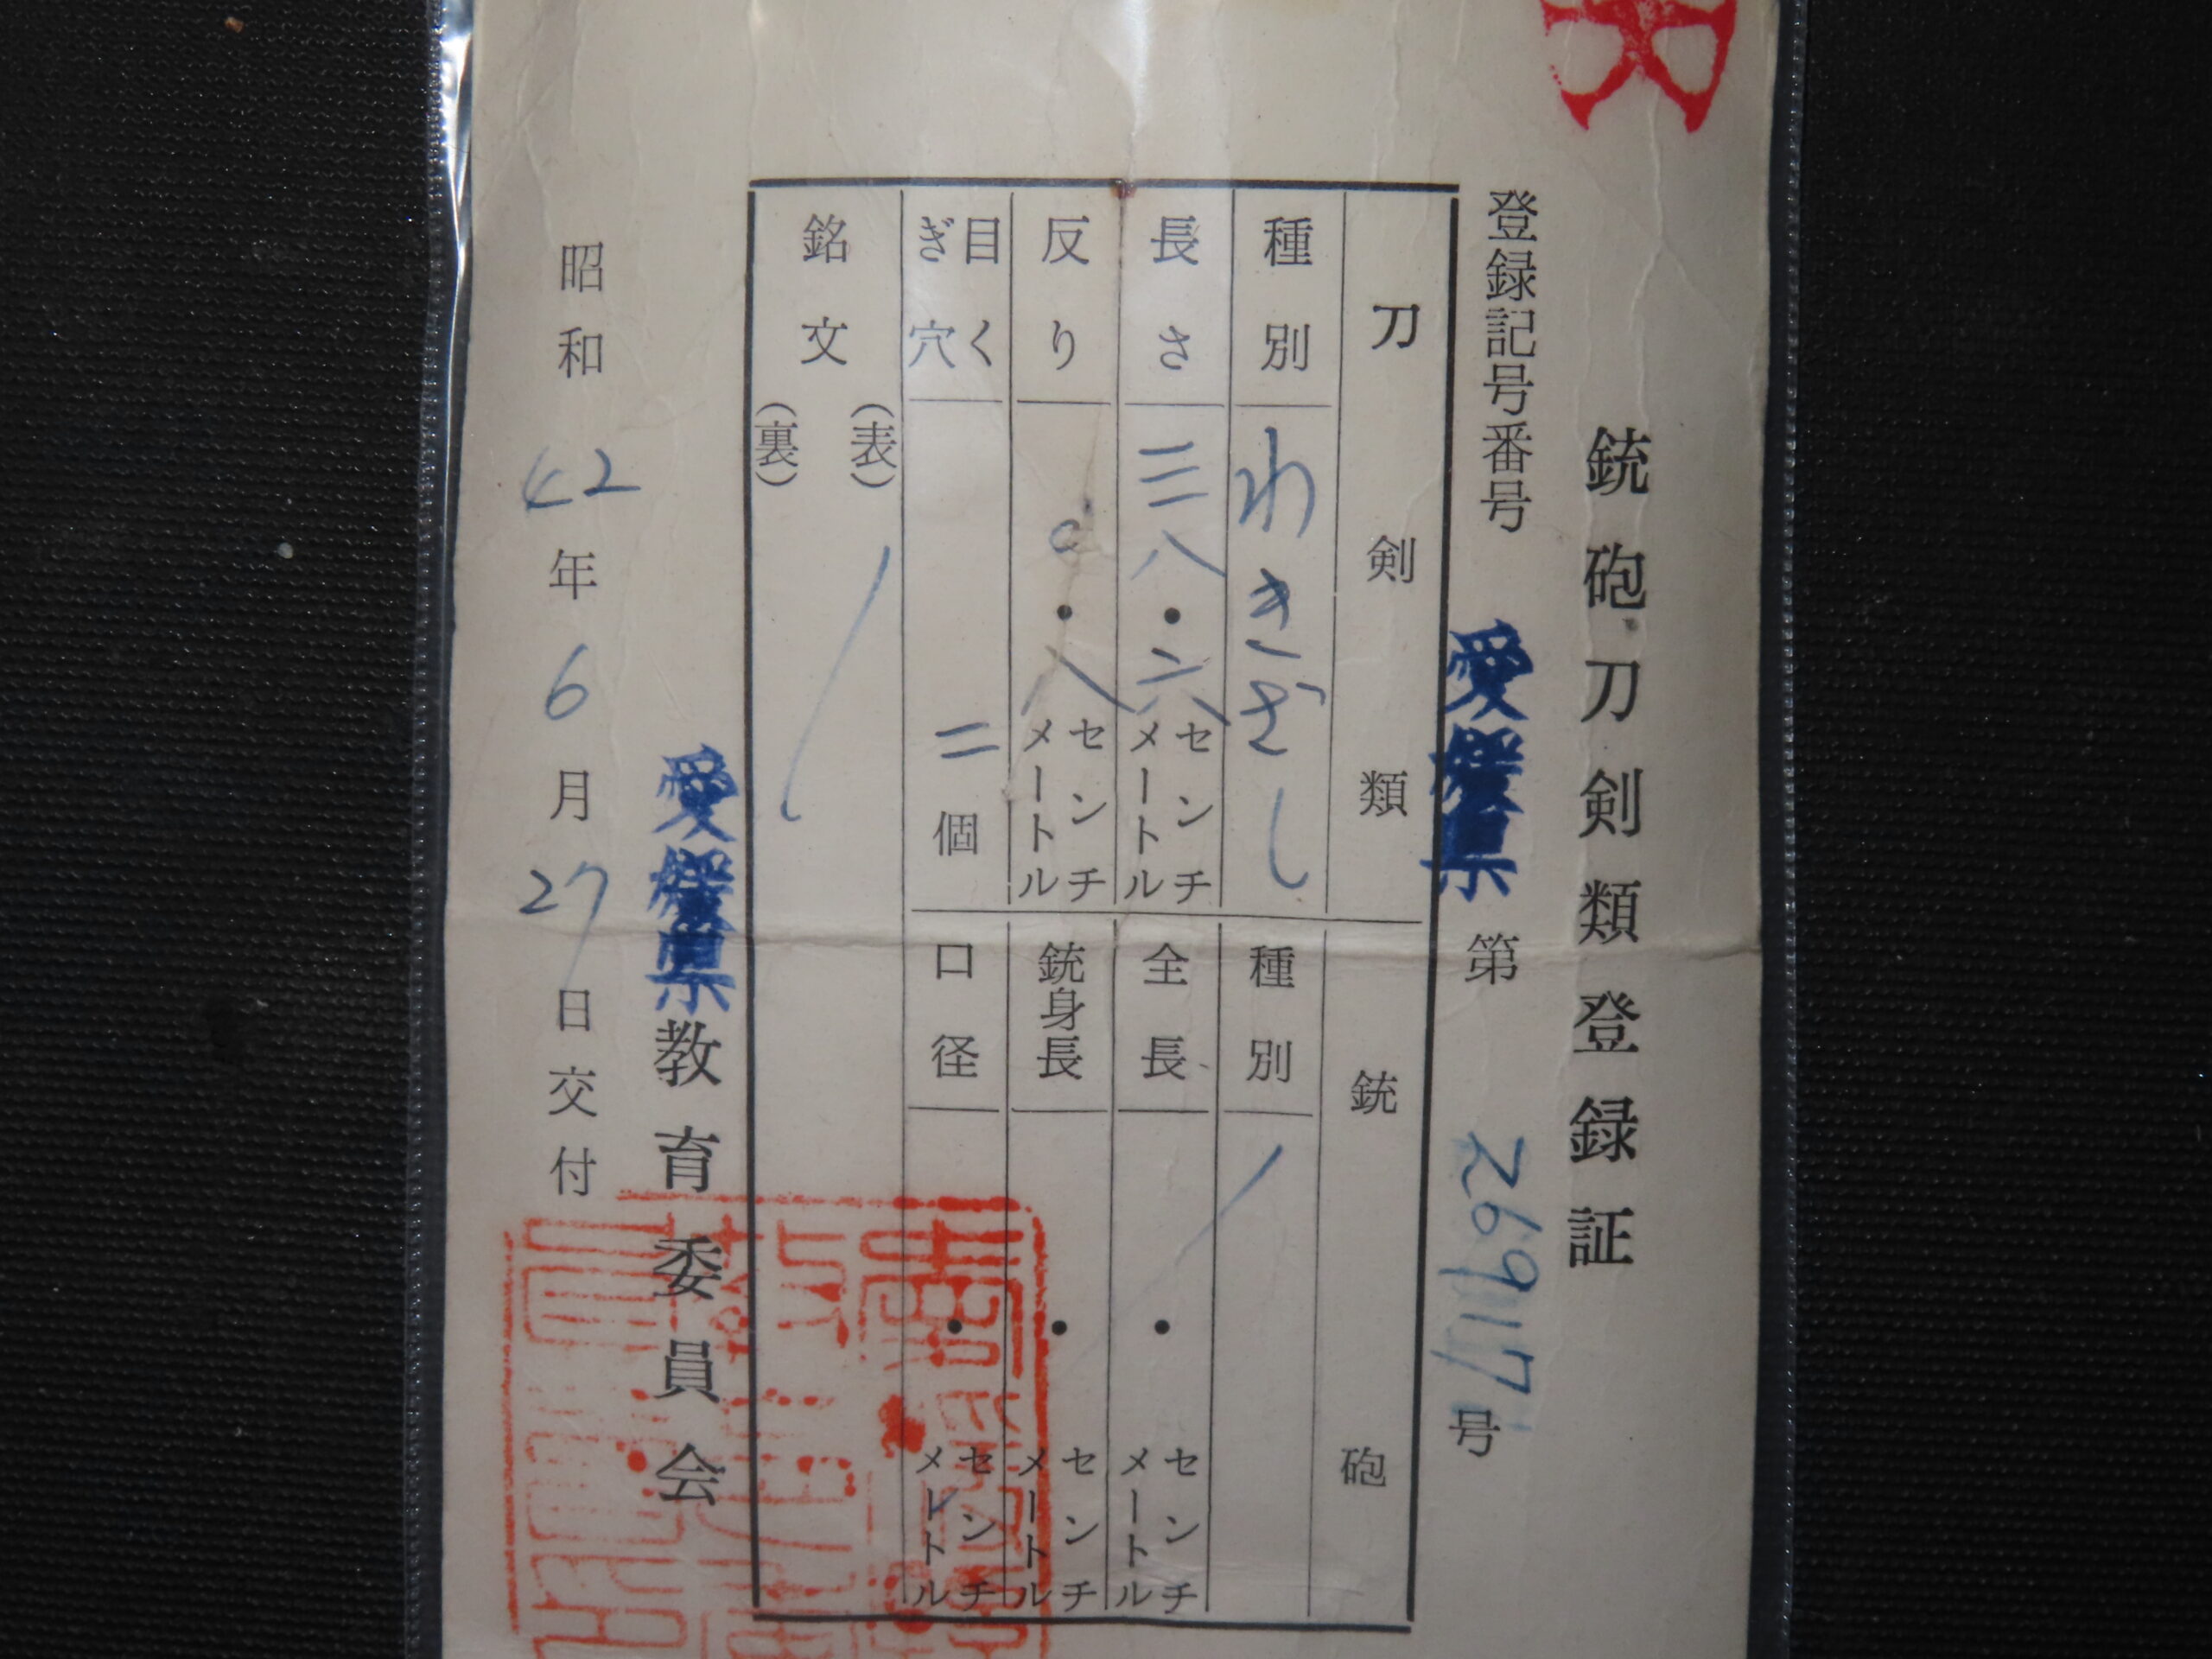 銃砲刀剣類登録証
登録記号番号 愛媛県 第 26917 号
刀剣類
種別 わきざし
長さ 三八・六 センチメートル
反り 〇・八 センチメートル
目くぎ穴 二個
銘文 (表)
(裏)
銃砲
種別
全長 ・ センチメートル
銃身長 ・ センチメートル
口径 ・ センチメートル
愛媛県教育委員会
昭和42年6月27日交付